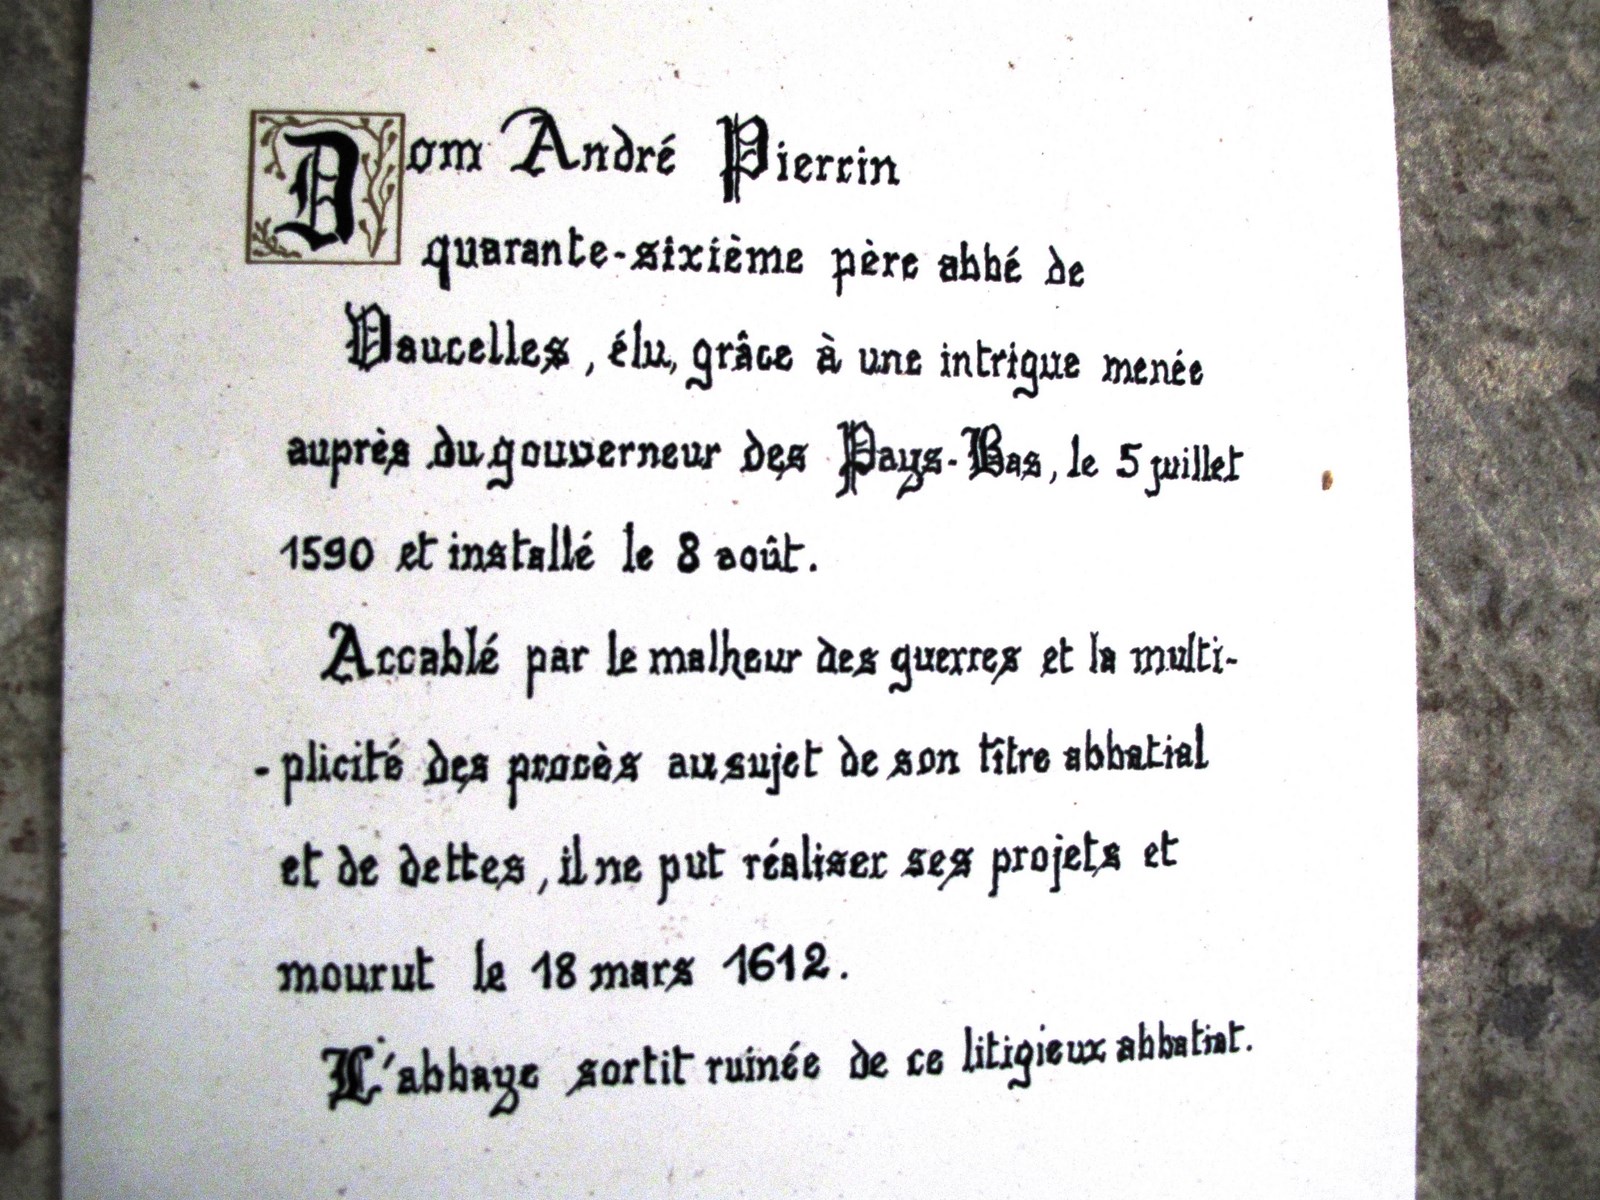 Dom André Pierrin
quarante-sixième père abbé de
Vaucelles, élu, grâce à une intrigue menée
auprès du gouverneur des Pays-Bas, le 5 juillet
1590 et installé le 8 août.
Accablé par le malheur des guerres et la multi-
-plicité des procès au sujet de son tître abbatial
et de dettes, il ne put réaliser ses projets et
mourut le 18 mars 1612.
L'abbaye sortit ruinée de ce litigieux abbatiat.